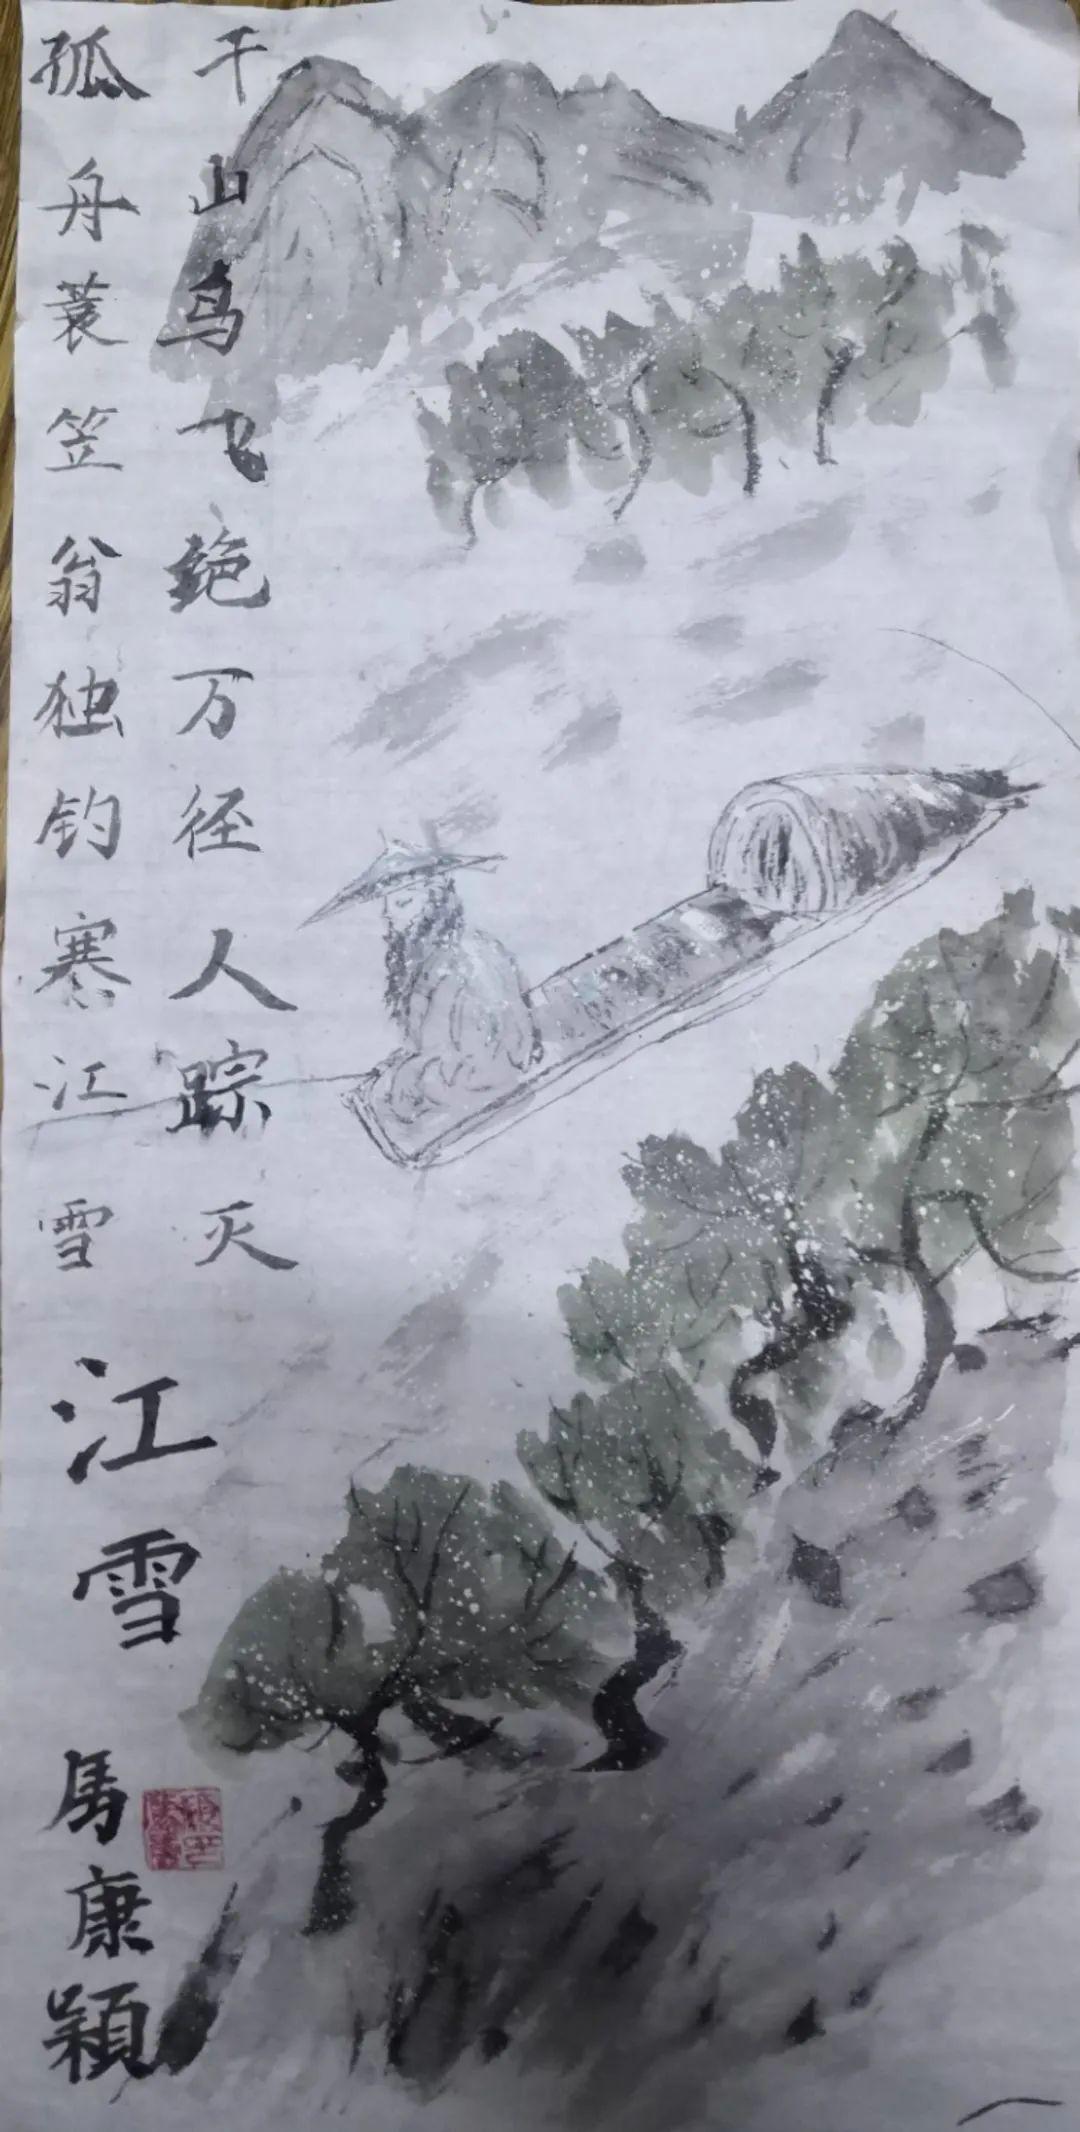 千山鸟飞绝万径人踪灭
孤舟蓑笠翁独钓寒江雪
江雪
馬康穎